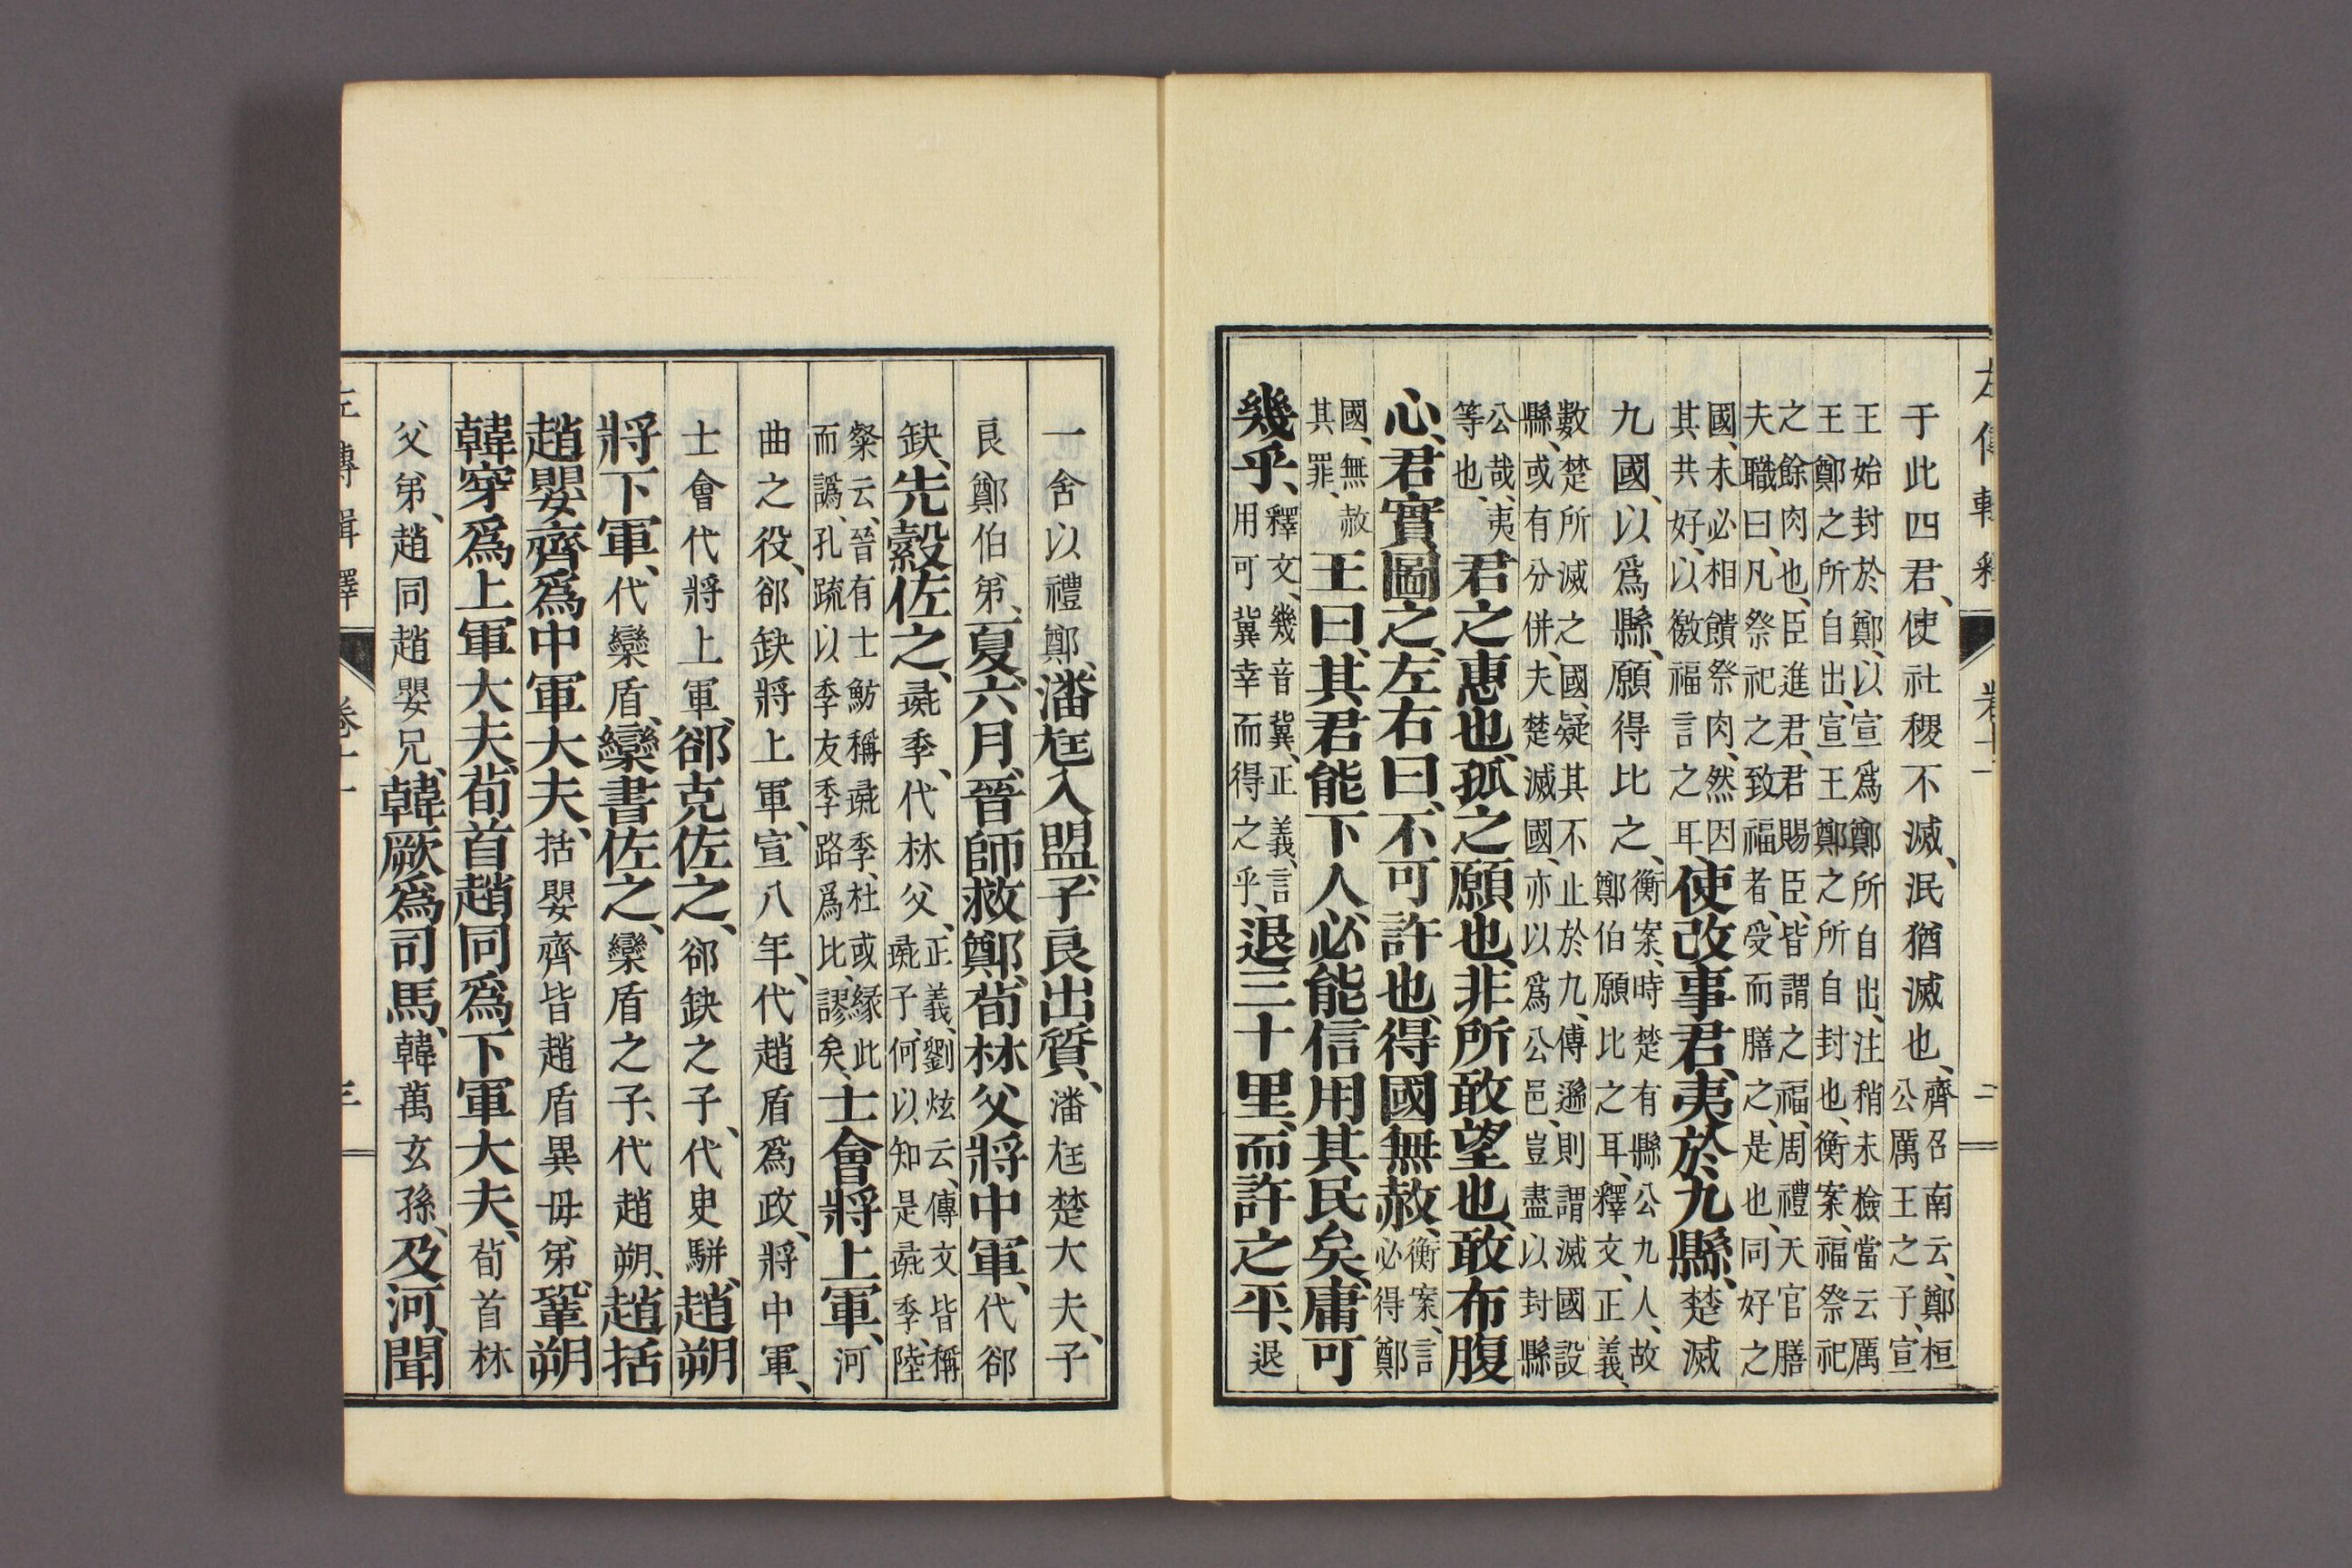 左傳輯釋 卷十一 二
于此四君、使社稷不滅、泯猶滅也、齊召南云、鄭桓公厲王之子、宣
王始封於鄭、以宣爲鄭所自出、注稍未檢、當云厲王鄭之所自出、宣王鄭之所自封也、衡案、福祭祀
之餘肉也、臣進君、君賜臣、皆謂之福、周禮天官膳夫職曰、凡祭祀之致福者、受而膳之、是也、同好之
國、未必相饋祭肉、然因其共好、以徼福言之耳、使改事君、夷於九縣、楚滅
九國、以爲縣、願得比之、衡案、時楚有縣公九人、故鄭伯願比之耳、釋文、正義、
數楚所滅之國、疑其不止於九、傅遜則謂滅國設縣、或有分併、夫楚滅國、亦以爲公邑、豈盡以封縣
公哉、夷等也、君之惠也、孤之願也、非所敢望也、敢布腹
心、君實圖之、左右曰、不可許也、得國無赦、衡案、言必得鄭
國、無赦其罪、王曰、其君能下人、必能信用其民矣、庸可
幾乎、釋文、幾音冀、正義、言用可冀幸而得之乎、退三十里、而許之平、退
一舍以禮鄭、潘尫入盟、子良出質、潘尫楚大夫、子
良鄭伯弟、夏、六月、晉師救鄭、荀林父將中軍、代郤
缺、先縠佐之、彘季、代林父、正義、劉炫云、傳文皆稱彘子、何以知是彘季、陸
粲云、晉有士魴稱彘季、杜或緣此而譌、孔疏以季友季路爲比、謬矣、士會將上軍、河
曲之役、郤缺將上軍、宣八年、代趙盾爲政、將中軍、
士會代將上軍、郤克佐之、郤缺之子、代臾駢、趙朔
將下軍、代欒盾、欒書佐之、欒盾之子、代趙朔、趙括
趙嬰齊爲中軍大夫、括嬰齊皆趙盾異母弟、鞏朔
韓穿爲上軍大夫、荀首趙同爲下軍大夫、荀首林
父弟、趙同趙嬰兄、韓厥爲司馬、韓萬玄孫、及河、聞
左傳輯釋 卷十一 三